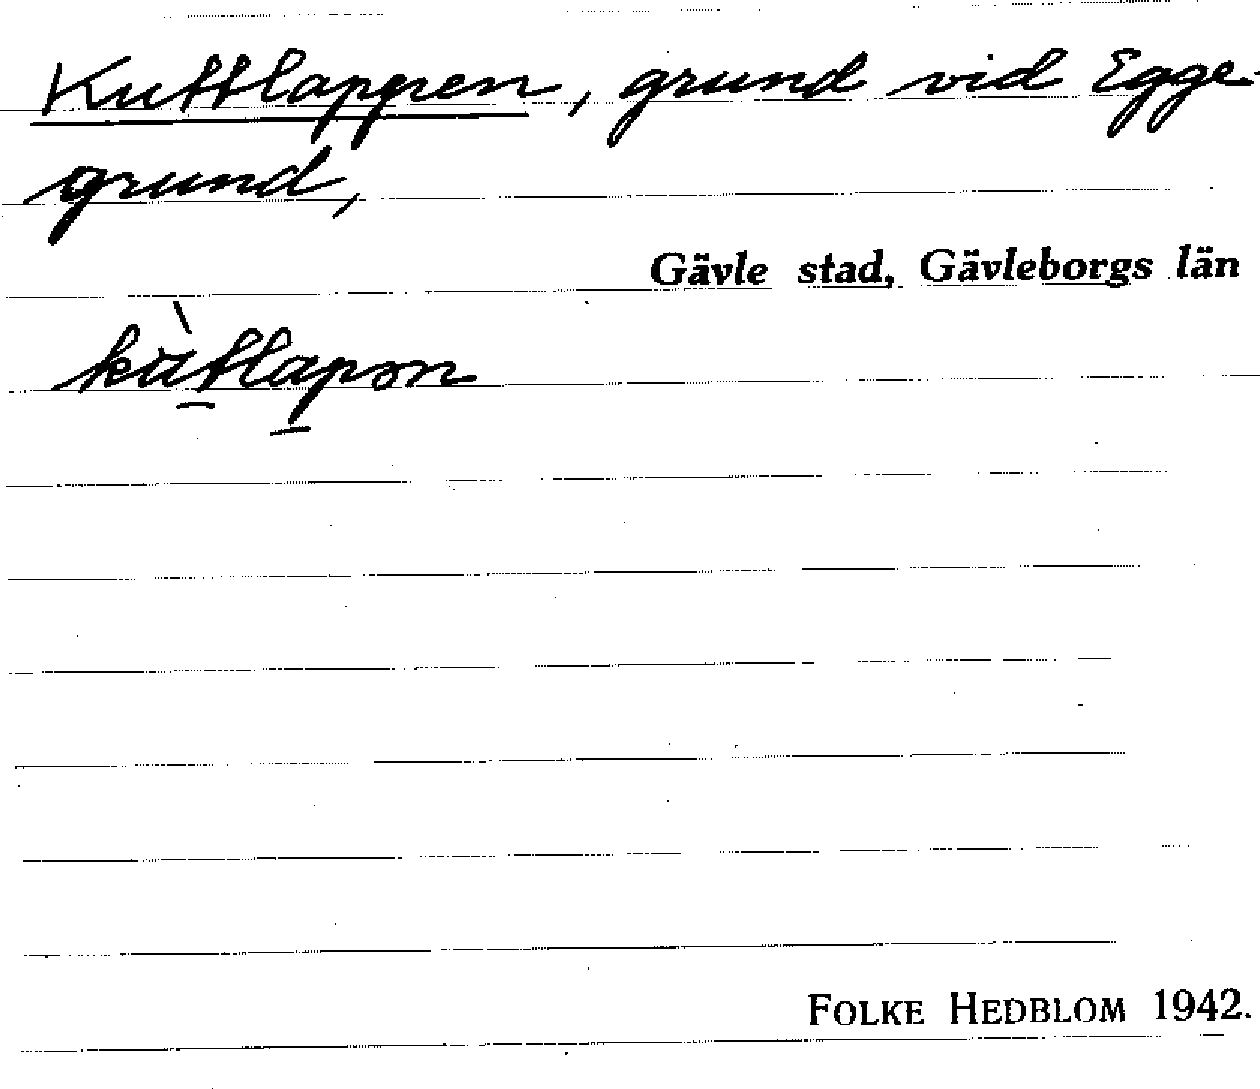 Kuttlappen, grund vid Egge-
grund,
Gävle stad, Gävleborgs län
kùtlapən
FOLKE HEDBLOM 1942.